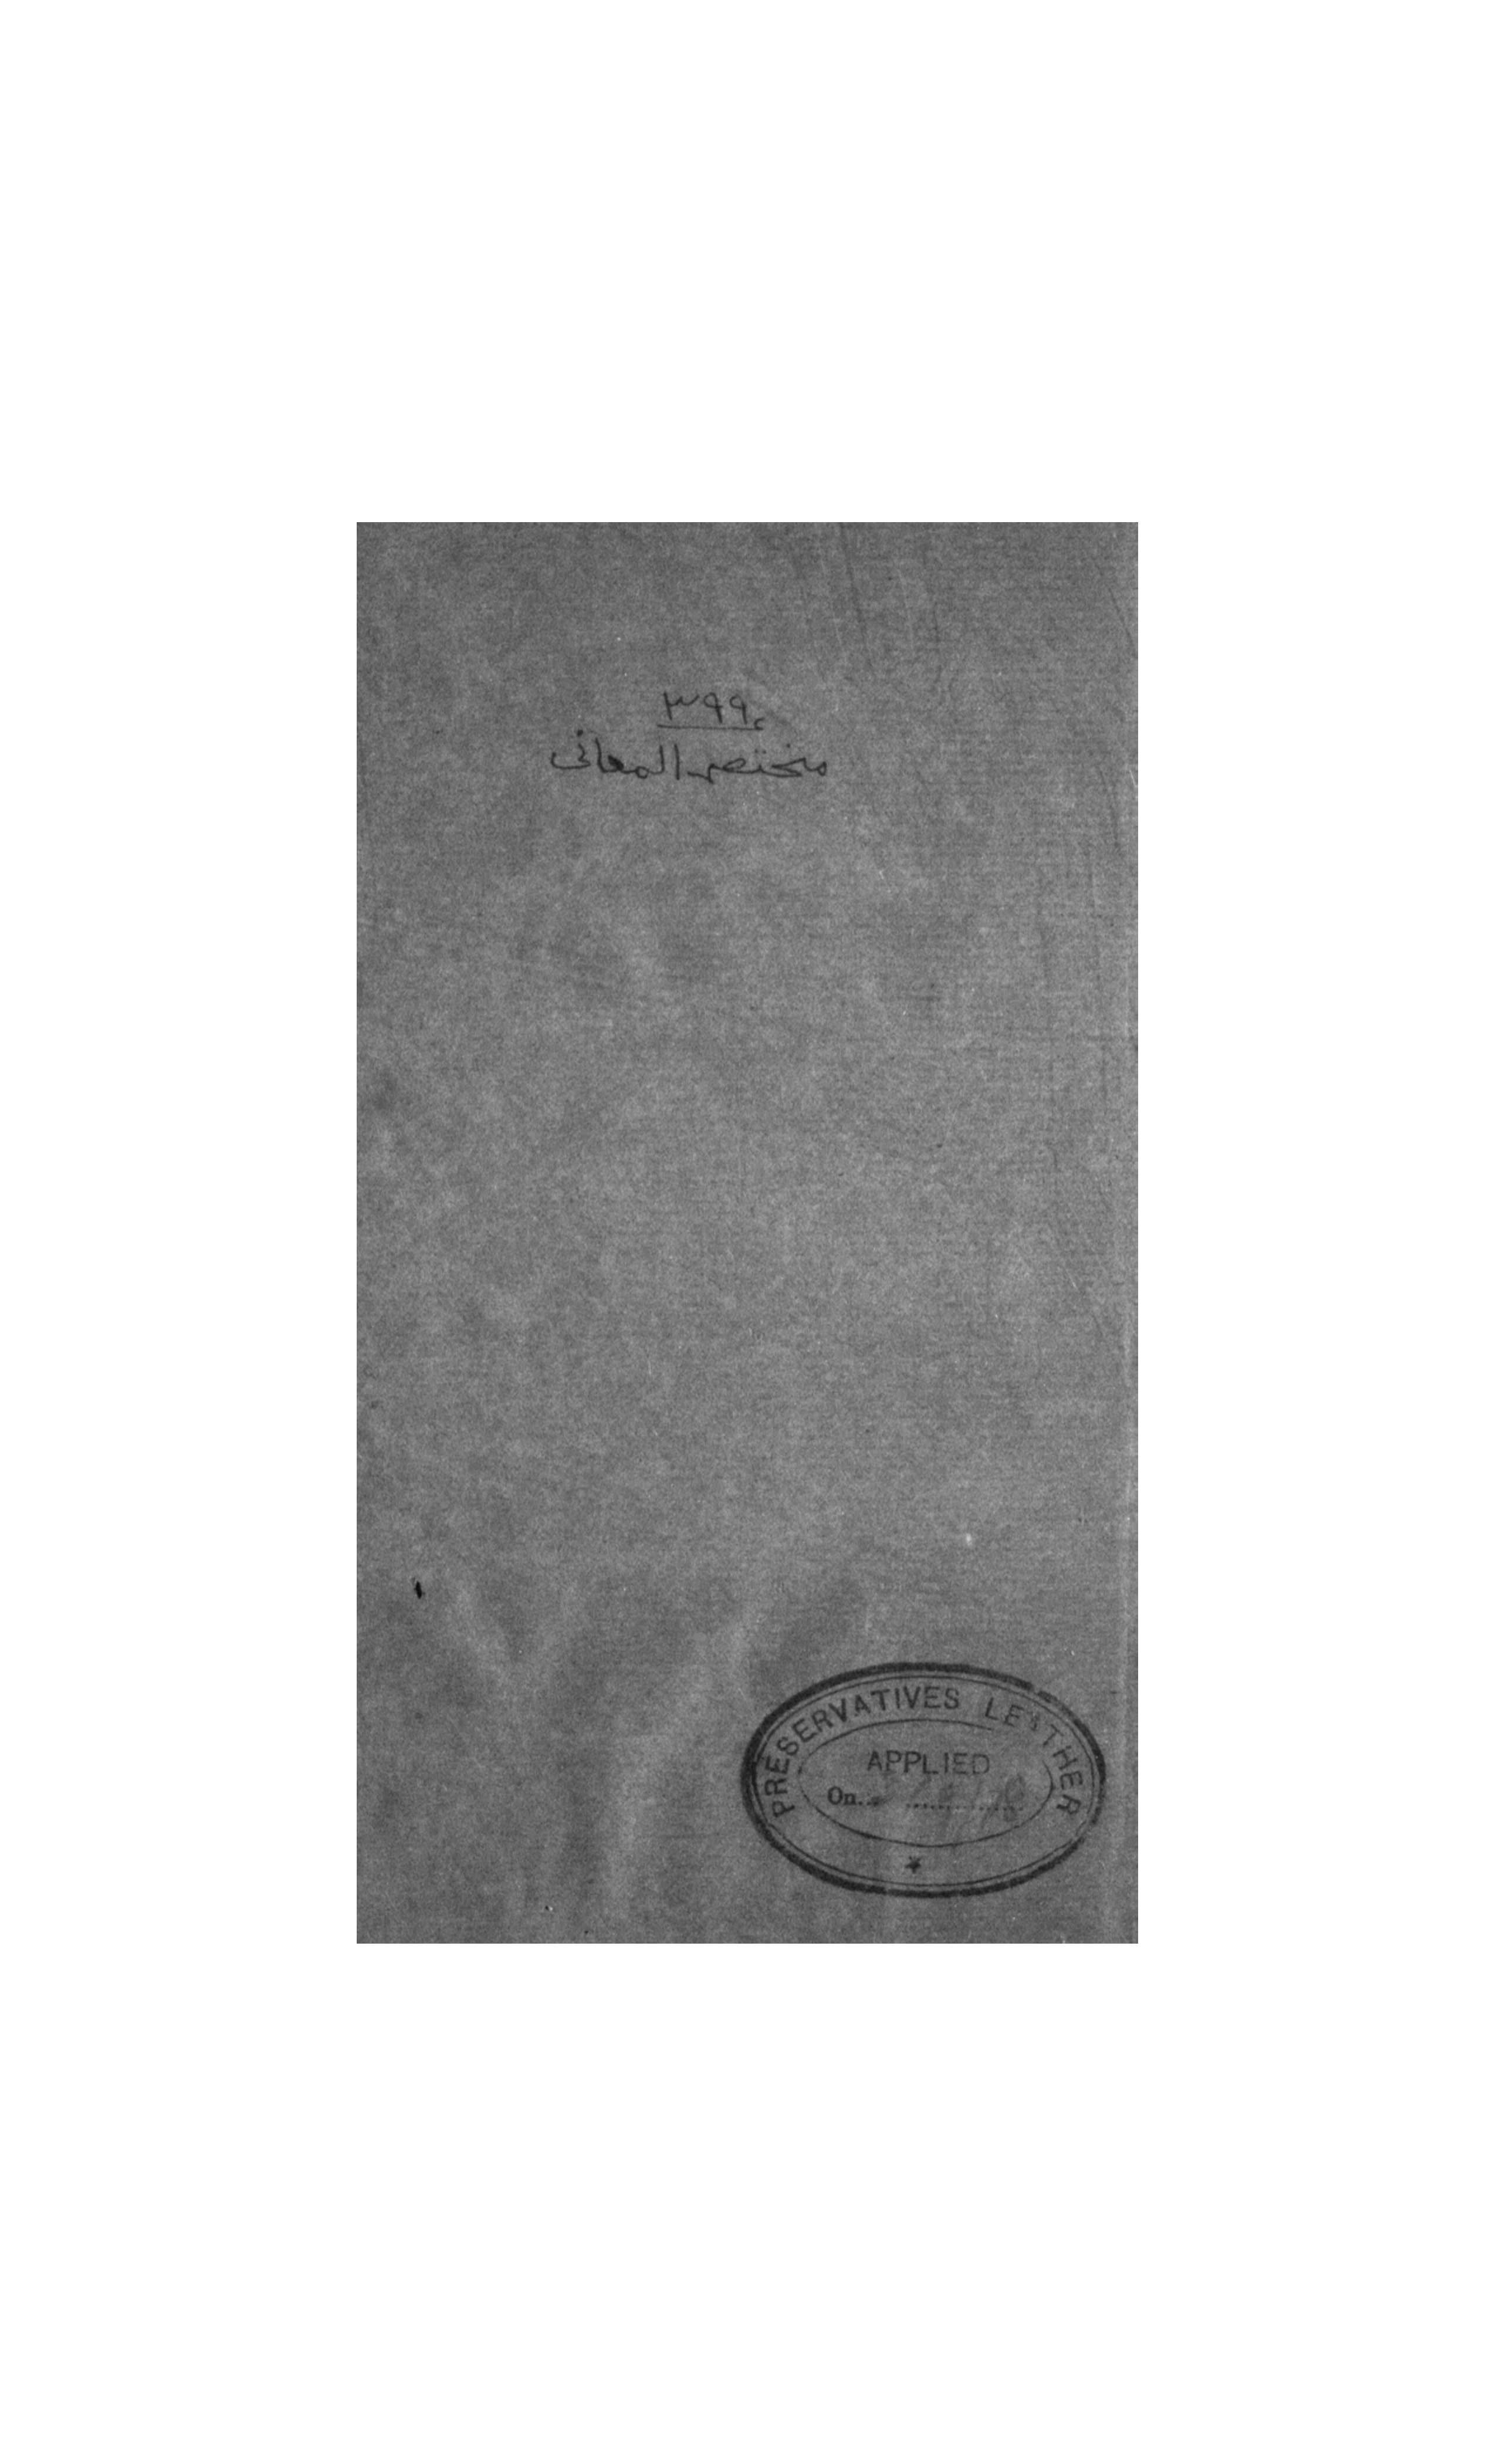 ٣٩٩
مختصر المعانی
PRESERVATIVES LEATHER
APPLIED
On